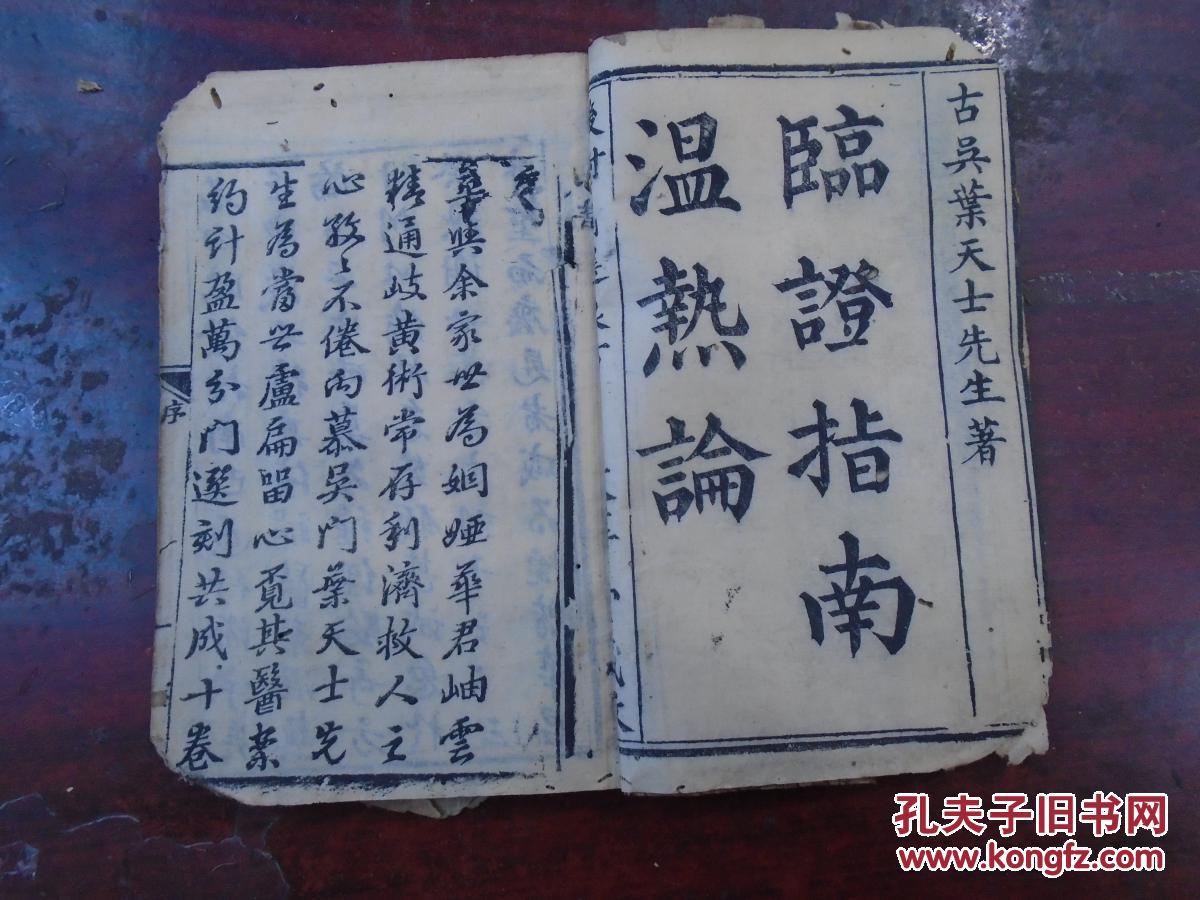 古吳葉天士先生著
臨證指南
溫熱論
序
華與余家世為姻婭華君岫雲
精通岐黃術常存利濟救人之
心孜〻不倦向慕吳門葉天士先
生為當世盧扁留心覓其醫案
約計盈萬分門選刻共成十卷
序
孔夫子旧书网
www.kongfz.com